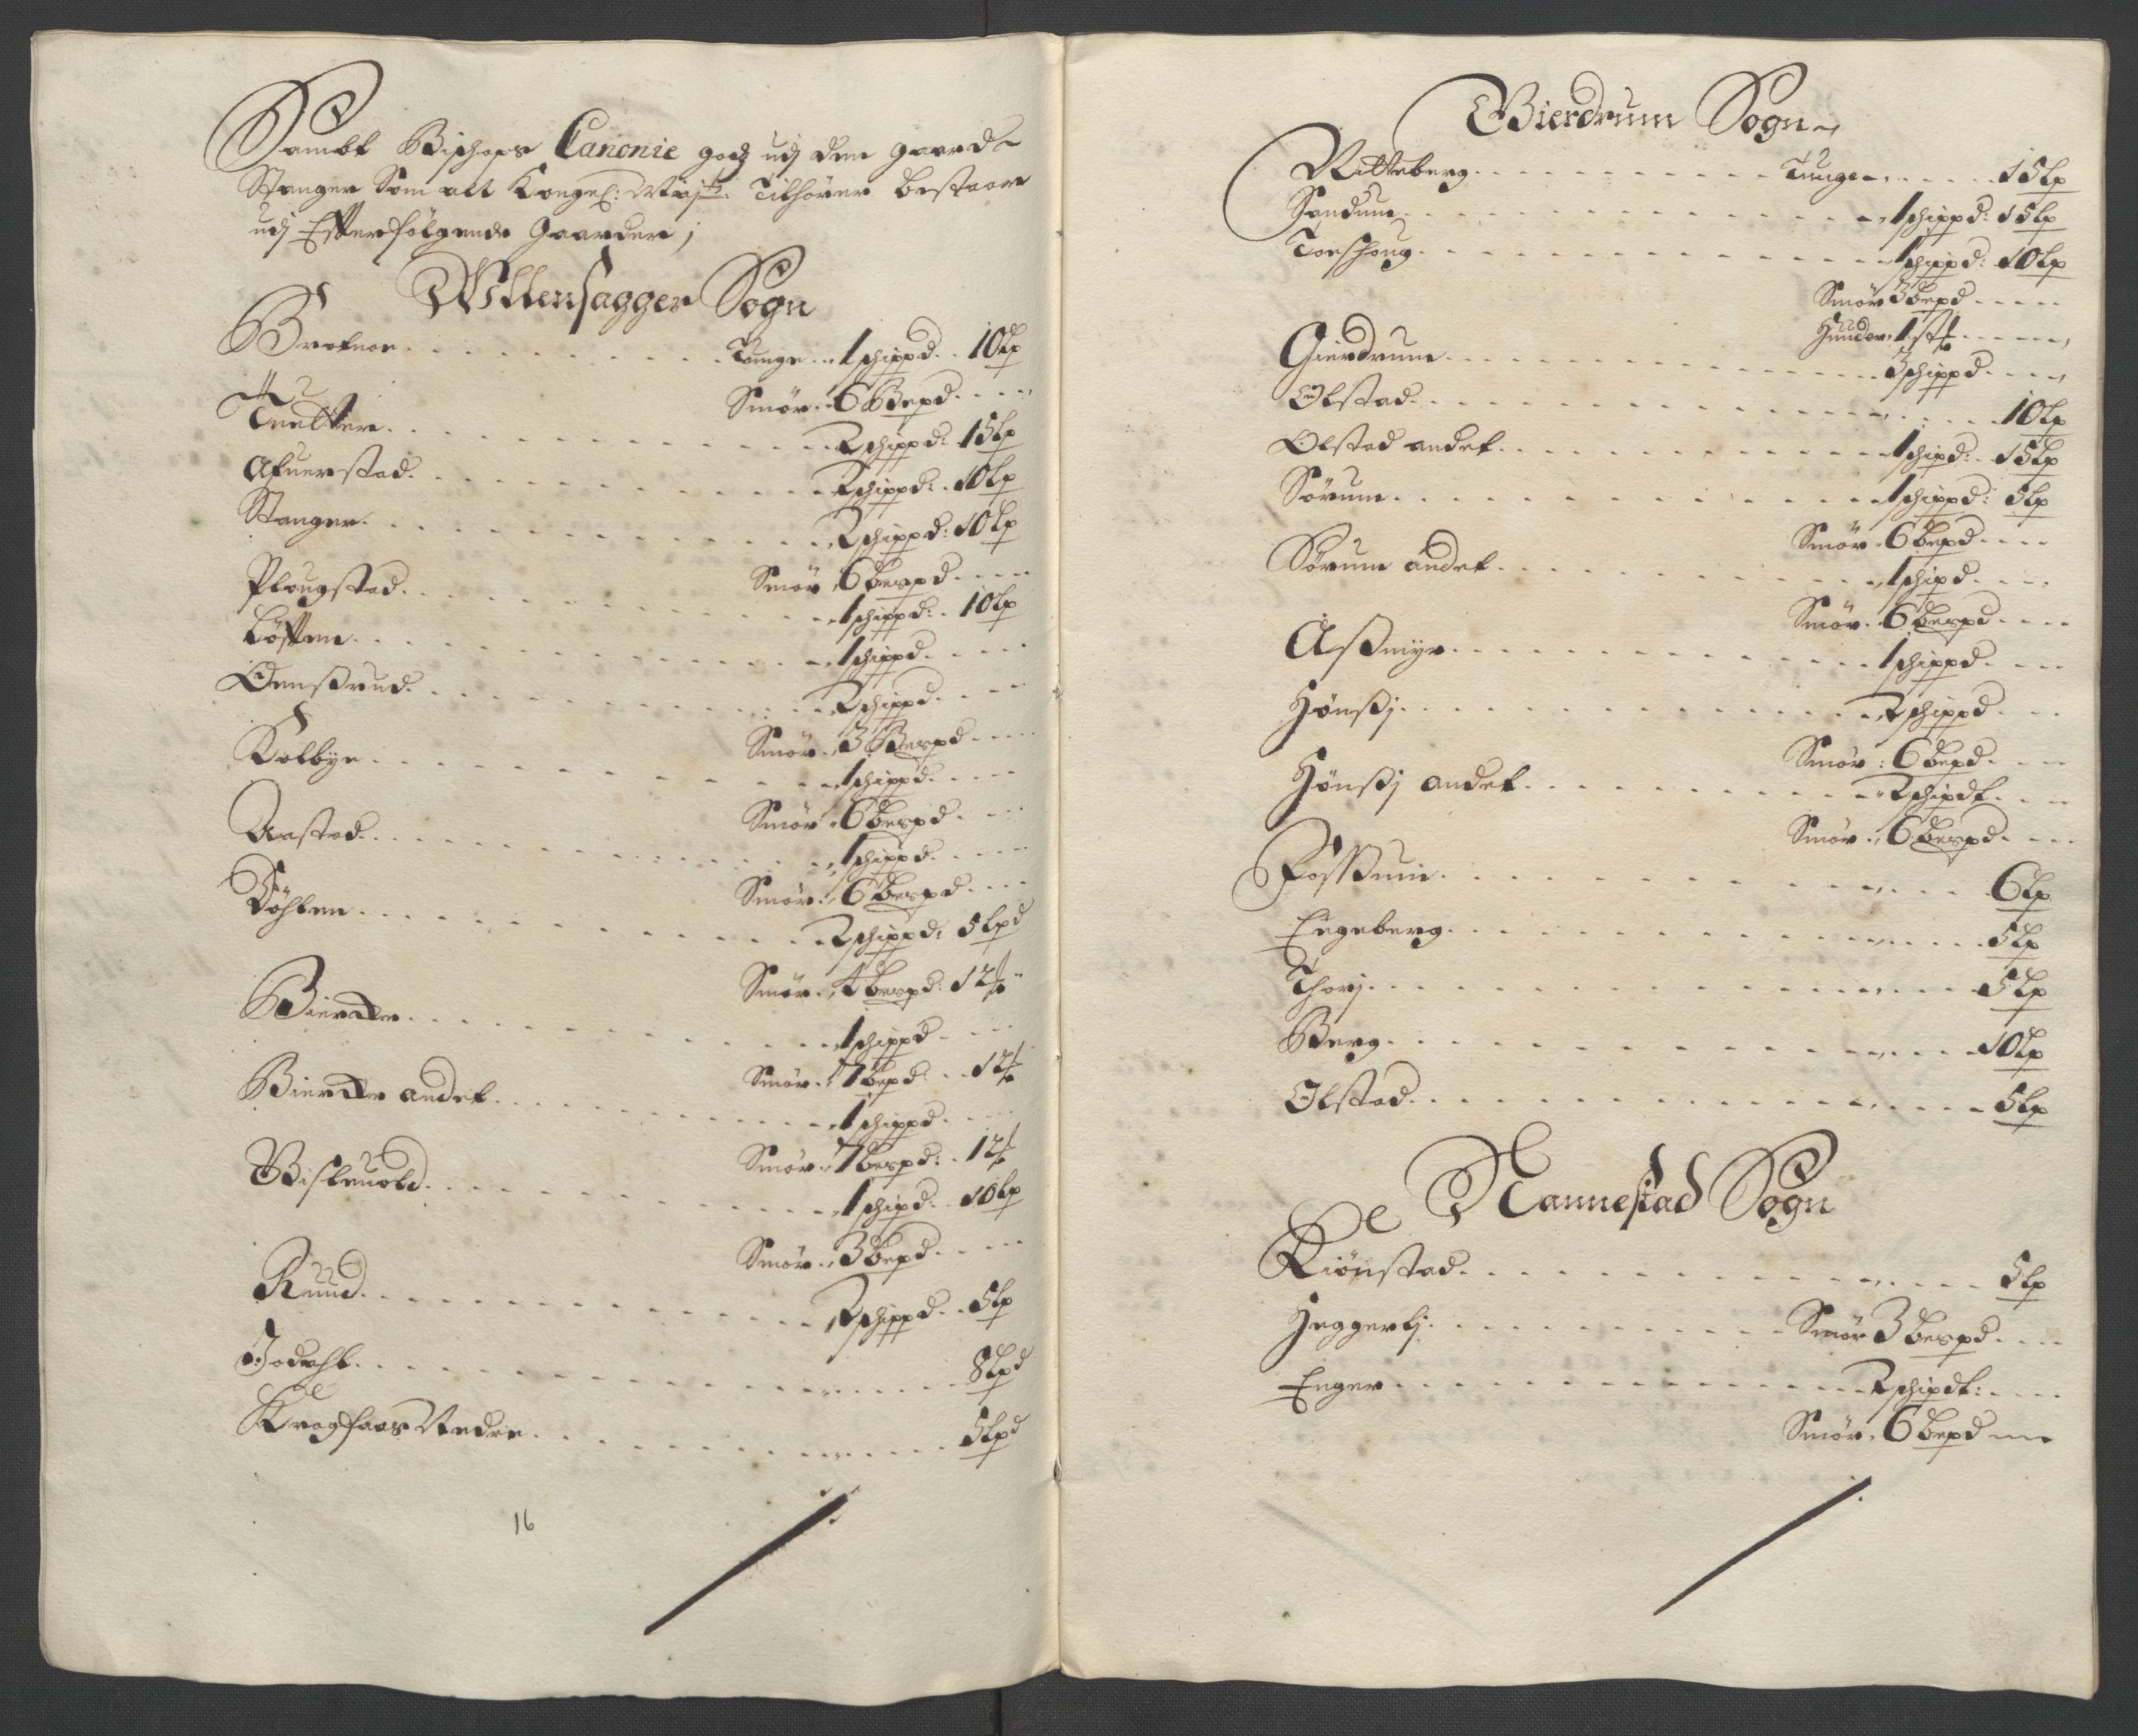 Sambt Bischops Canonie godz udj den gaard
Stanger Som alt Kongel: Maj:tz: Tilhører bestaar
udj Efterfølgende Gaarder;
Wllensagger Sogn
Tunge . . 1 schippd . . 10 Lp
Smør . 6 Bepd
Tuetten . . . 2 schippd: 15 Lp
Afuerstad . . . 2 schippd: 10 Lp
Stanger . . . 2 schippd: 10 Lp
Smør 6 bespd
Plougstad . . . 1 schippd: 10 Lp
Løften . . . 1 schippd
Oensrud . . . 2 schippd
Smør . 3 Bespd
Kolbye . . . 1 schippd
Smør 6 bespd
Aastad . . . 1 schippd
Smør . 6 bespd
Døhlen . . . 2 schippd, 5 Lpd
Smør . 4 bespd: 12 ℔
Bierche . . . 1 schippd
Smør . 7 bepd . . 12 ℔
Bierche andet . . . 1 schippd
Smør . 7 bespd: . 12 ℔
Bisleuold . . . 1 schipd: 10 Lp
Smør . 3 bepd
Ruud . . . 2 schippd . . 5 Lp
Jodahl . . . 8 Lpd
Kragfaas Nedre . . . 5 Lpd
16
Gierdrum Sogn
Ritteberg . . . Tunge . . . 15 Lp
Sandum . . . 1 schippd: 15 Lp
Toeshoug . . . 1 schippd: 10 Lp
Smør 3 bepd
Huuder 1 st
Gierdrum . . . 3 schippd
Olstad . . . 10 Lp
Olstad andet . . . 1 schipd: 15 Lp
Sørum . . . 1 schippd: 5 Lp
Smør . 6 bepd
Sørum andet . . . 1 schipd
Smør . 6 bespd
Assmyr . . . 1 schippd
Hønssj . . . 2 schippd
Smør : 6 bepd
Hønssj andet . . . 2 schipdt
Smør . 6 bespd
Fossum . . . 6 Lp
Engeberg . . . 5 Lp
Thorj . . . 5 Lp
Berg . . . 10 Lp
Olstad . . . 5 Lp
Nannestad Sogn
Kiønstad . . . 5 Lp
Heggerlj . . . Smør 3 bespd
Enger . . . 2 schipdt:
Smør . 6 bepd